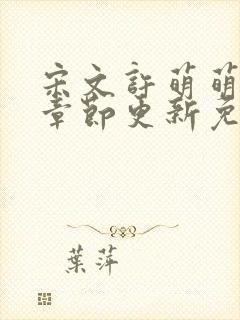 宋文許萌萌
章節更新免
葉萍